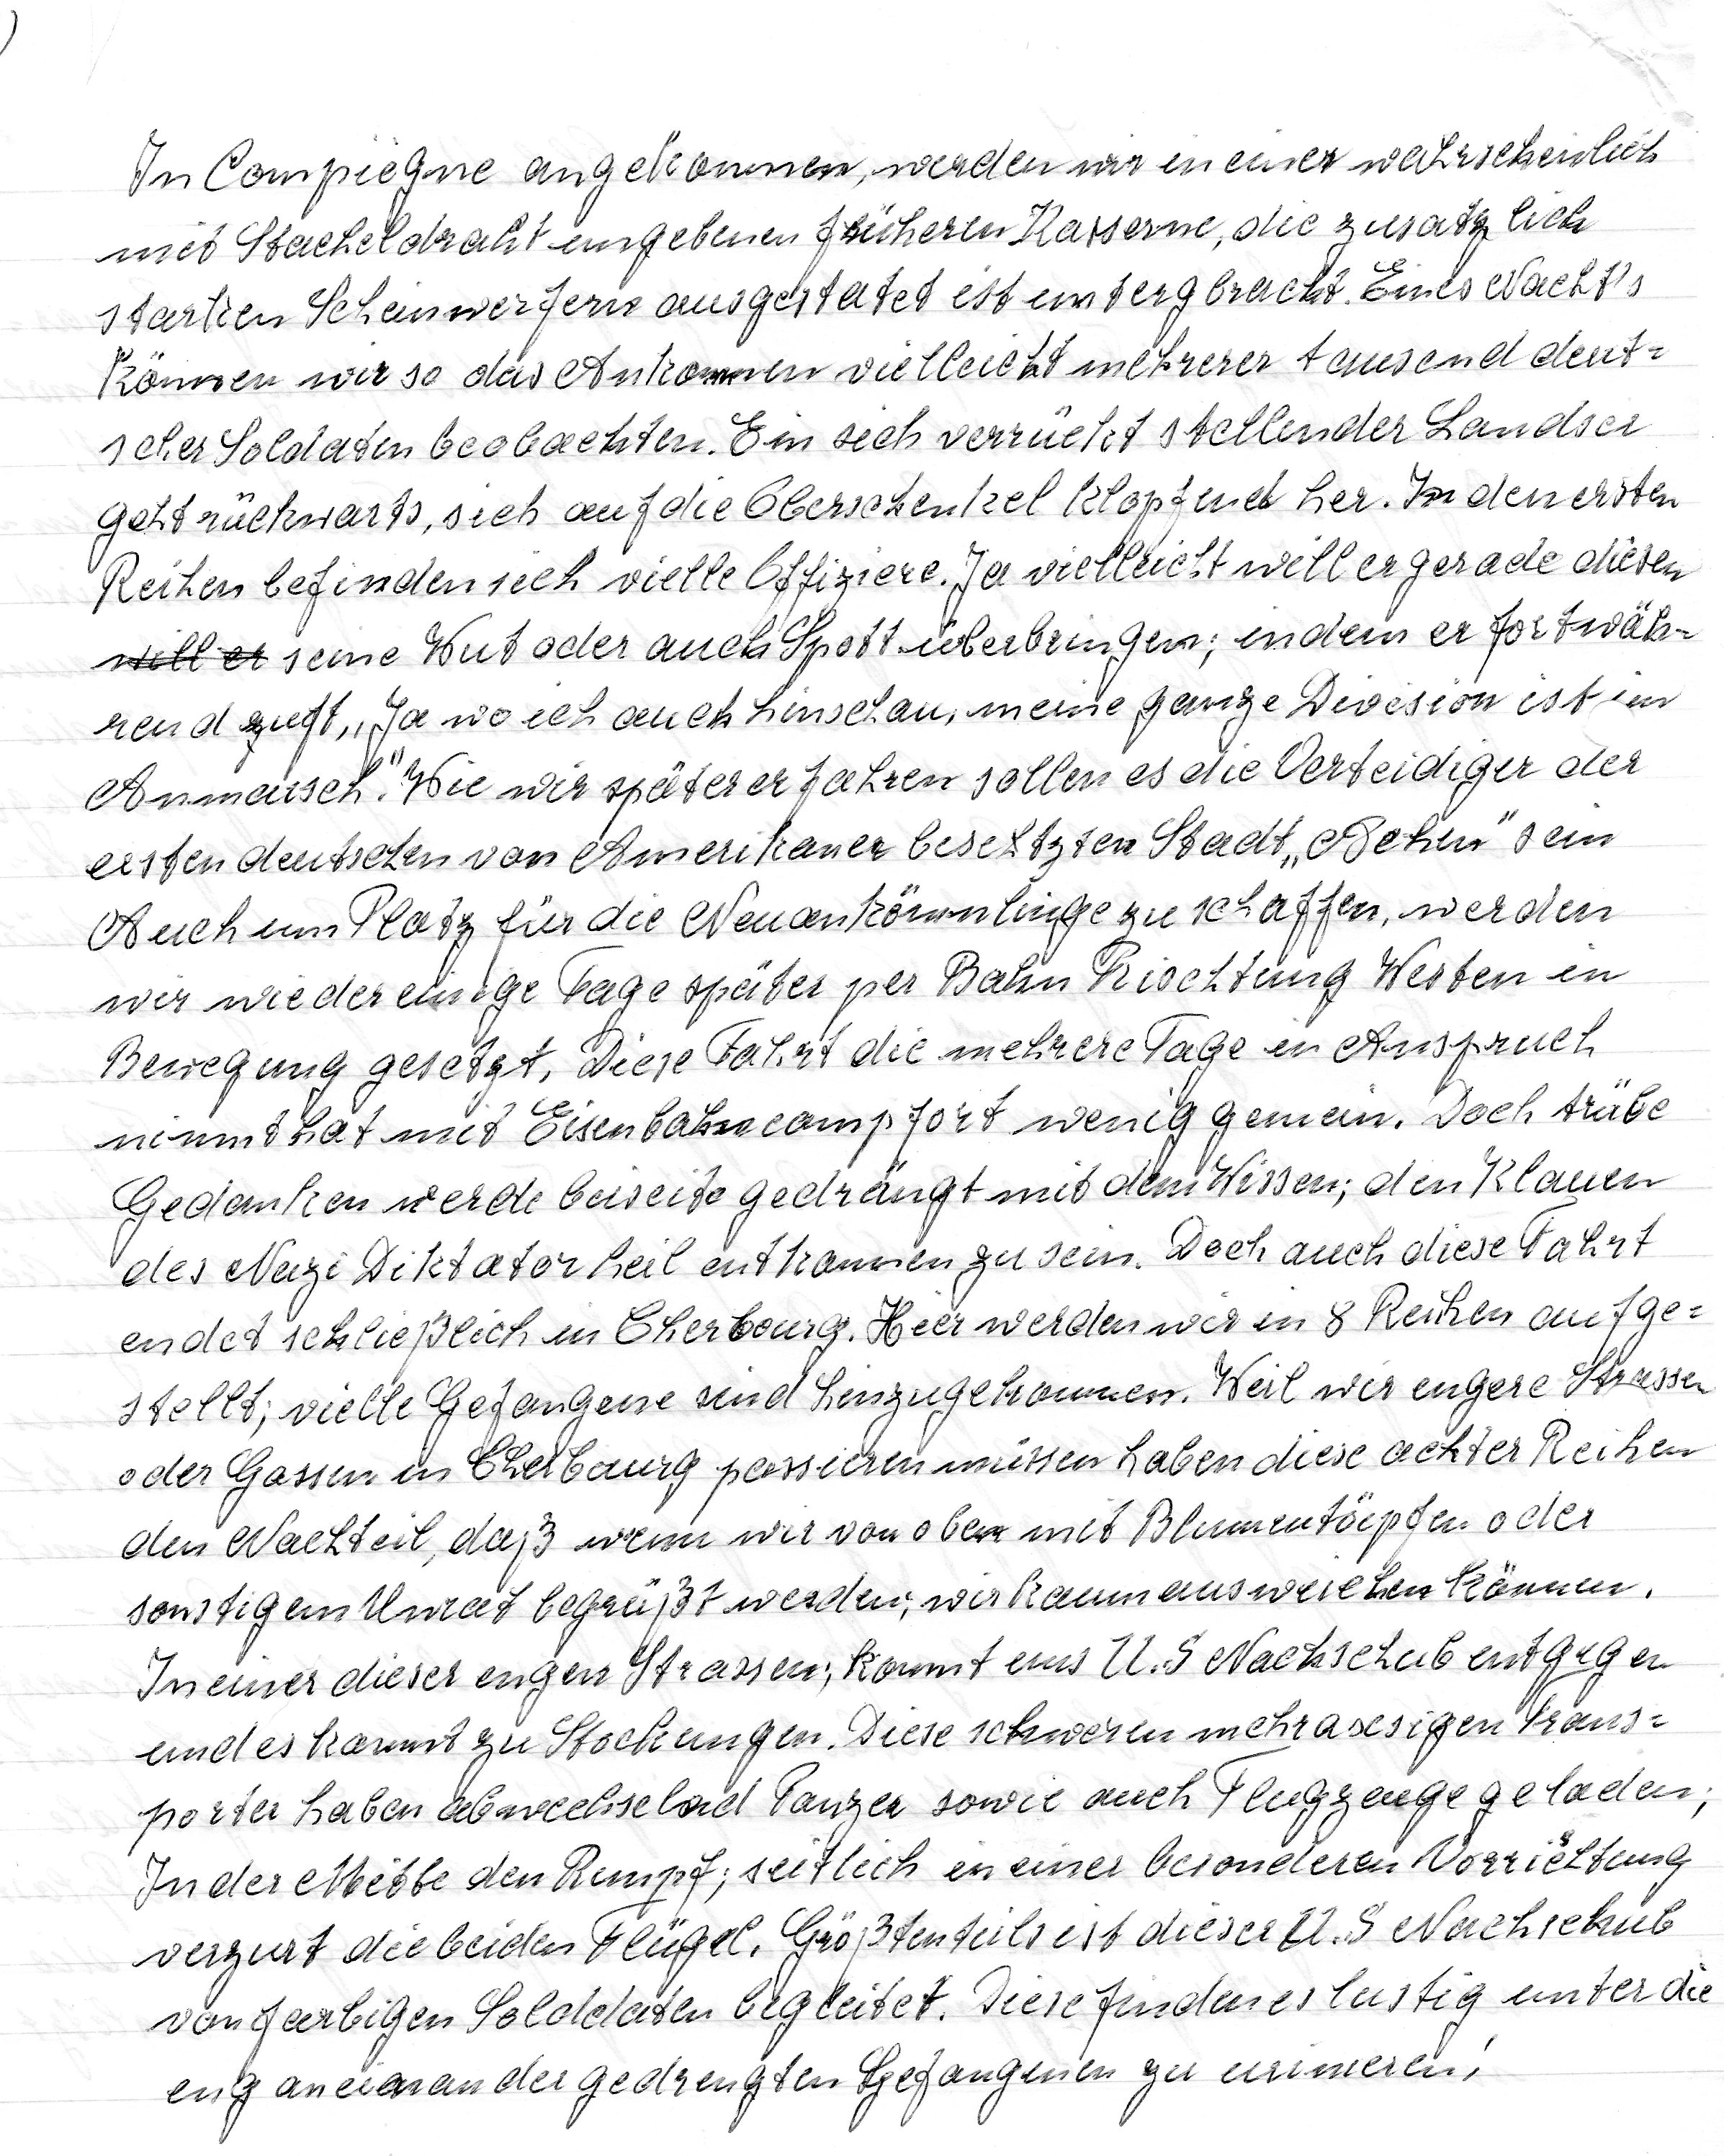 In Compiègne angekommen, werden wir in einer wahrscheinlich
mit Stacheldraht umgebenen früheren Kasserne, die zusätzlich
starken Scheinwerfern ausgestatet ist untergbracht. Eines Nacht's
können wir so das Ankommen vielleicht mehrerer tausend deut=
scher Soldaten beobachten. Ein sich verrückt stellender Landser
geht rückwarts, sich auf die Oberschenkel klopfend her. In den ersten
Reihen befinden sich vielle Offiziere. Ja vielleicht will er gerade diesen
will er seine Wut oder auch Spott überbringen; indem er fortwäh=
rend ruft, „Ja wo ich auch hinschau, meine ganze Division ist im
Anmarsch." Wie wir später erfahren sollen es die Verteidiger der
ersten deutschen von Amerikaner besetzten Stadt „Achen" sein
Auch um Platz für die Neuankömmlinge zu schaffen, werden
wir wieder einige Tage später per Bahn Richtung Westen in
Bewegung gesetzt. Diese Fahrt die mehrere Tage in Anspruch
nimmt hat mit Eisenbahncompfort wenig gemein. Doch trübe
Gedanken werde beiseite gedrängt mit dem Wissen; den Klauen
des Nazi Diktator heil entkommen zu sein. Doch auch diese Fahrt
endet schließlich in Cherbourg. Hier werden wir in 8 Reihen aufge=
stellt; vielle Gefangene sind hinzugekommen. Weil wir engere Strassen
oder Gassen in Cherbourg passieren müssen haben diese achter Reihen
den Nachteil, daß wenn wir von oben mit Blumentöpfen oder
sonstigem Unrat begrüßt werden; wir kaum ausweichen können.
In einer dieser engen Strassen; kommt uns U.S Nachschub entgegen
und es kommt zu Stockungen. Diese schweren mehraxsigen Trans=
porter haben abwechselnd Panzer sowie auch Flugzeuge geladen;
In der Mitte den Rumpf; seitlich in einer besonderen Vorrichtung
verzurt die beiden Flügel. Größtenteils ist dieser U.S Nachschub
von farbigen Solddaten begleitet. Diese finden es lustig unter die
eng aneinander gedrengten Gefangenen zu urinieren;